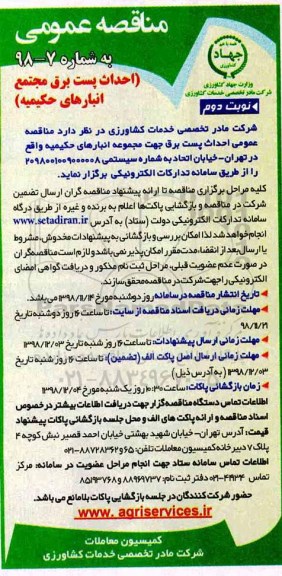 مناقصه عمومی
به شماره ۷-۹۸
(احداث پست برق مجتمع
انبارهای حکیمیه)
جهاد
وزارت جهاد کشاورزی
شرکت مادر تخصصی خدمات کشاورزی
نوبت دوم
شرکت مادر تخصصی خدمات کشاورزی در نظر دارد مناقصه
عمومی احداث پست برق جهت مجموعه انبارهای حکیمیه واقع
در تهران-خیابان اتحاد به شماره سیستمی ۲۰۹۸۰۰۱۰۰۹۰۰۰۰۰۸
را از طریق سامانه تدارکات الکترونیکی برگزار نماید.
کلیه مراحل برگزاری مناقصه تا ارائه پیشنهاد مناقصه گران ارسال تضمین
شرکت در مناقصه و بازگشایی پاکت‌ها اعلام به برنده و غیره از طریق درگاه
سامانه تدارکات الکترونیکی دولت (ستاد) به آدرس www.setadiran.ir
انجام خواهد شد لذا امکان بررسی و بازگشایی به پیشنهادات مخدوش، مشروط
یا ارسال بعد از انقضاء مدت مقرر امکان پذیر نمی باشد و لازم است مناقصه گران
در صورت عدم عضویت قبلی، مراحل ثبت نام مذکور و دریافت گواهی امضای
الکترونیکی را جهت شرکت در مناقصه محقق سازند.
تاریخ انتشار مناقصه در سامانه روز دوشنبه مورخ ۱۳۹۸/۱۱/۱۴ می باشد.
مهلت زمانی دریافت اسناد مناقصه از سایت: تا ساعت ۱۶ روز دوشنبه تاریخ
۹۸/۱۱/۲۱
مهلت زمانی ارسال پیشنهادات: تا ساعت ۱۶ روز شنبه تاریخ ۱۳۹۸/۱۲/۰۳
مهلت زمانی ارسال اصل پاکت الف (تضمین): تا ساعت ۱۶ روز شنبه تاریخ
۱۳۹۸/۱۲/۰۳ (به آدرس ذیل)
زمان بازگشائی پاکات: ساعت ۱۰:۳۰ روز یک شنبه مورخ ۱۳۹۸/۱۲/۰۴
اطلاعات تماس دستگاه مناقصه گزار جهت دریافت اطلاعات بیشتر در خصوص
اسناد مناقصه و ارائه پاکت های الف و محل جلسه بازگشائی پاکات پیشنهاد
قیمت: آدرس تهران- خیابان شهید بهشتی خیابان احمد قصیر نبش کوچه ۴
پلاک ۷ دبیرخانه کمیسیون معاملات تلفن: ۶۵ و ۸۸۷۲۸۳۶۲-۰۲۱
اطلاعات تماس سامانه ستاد جهت انجام مراحل عضویت در سامانه: مرکز
تماس ۴۱۹۳۴-۰۲۱ دفتر ثبت نام: ۸۸۹۶۹۷۳۷ و ۸۵۱۹۳۷۶۸
حضور شرکت کنندگان در جلسه بازگشایی پاکات بلامانع می باشد.
www.agriservices.ir
کمیسیون معاملات
شرکت مادر تخصصی خدمات کشاورزی